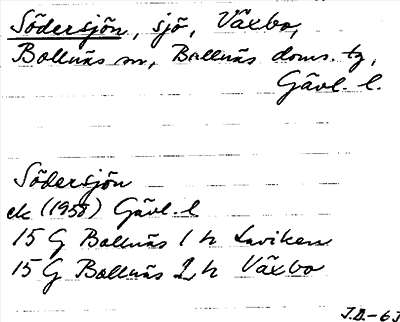 Södersjön, sjö, Växbo,
Bollnäs sn, Bollnäs doms. tg,
Gävl. l.
Södersjön
ek (1958) Gävl. l
15 G Bollnäs 1 h Laviken
15 G Bollnäs 2 h Växbo
J.D.-63